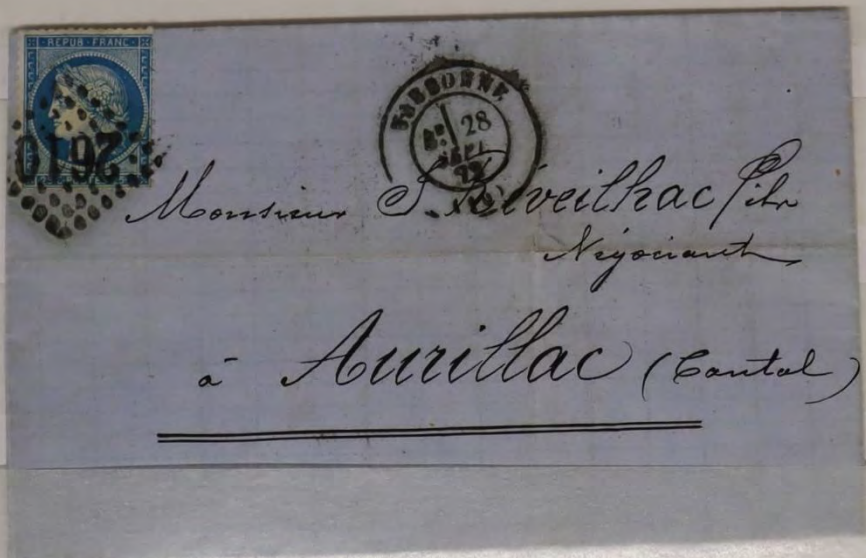 REPUB FRANC
2610
NARBONNE
28
SEPT
Monsieur J Réveilhac
Négociant
à Aurillac (Cantal)